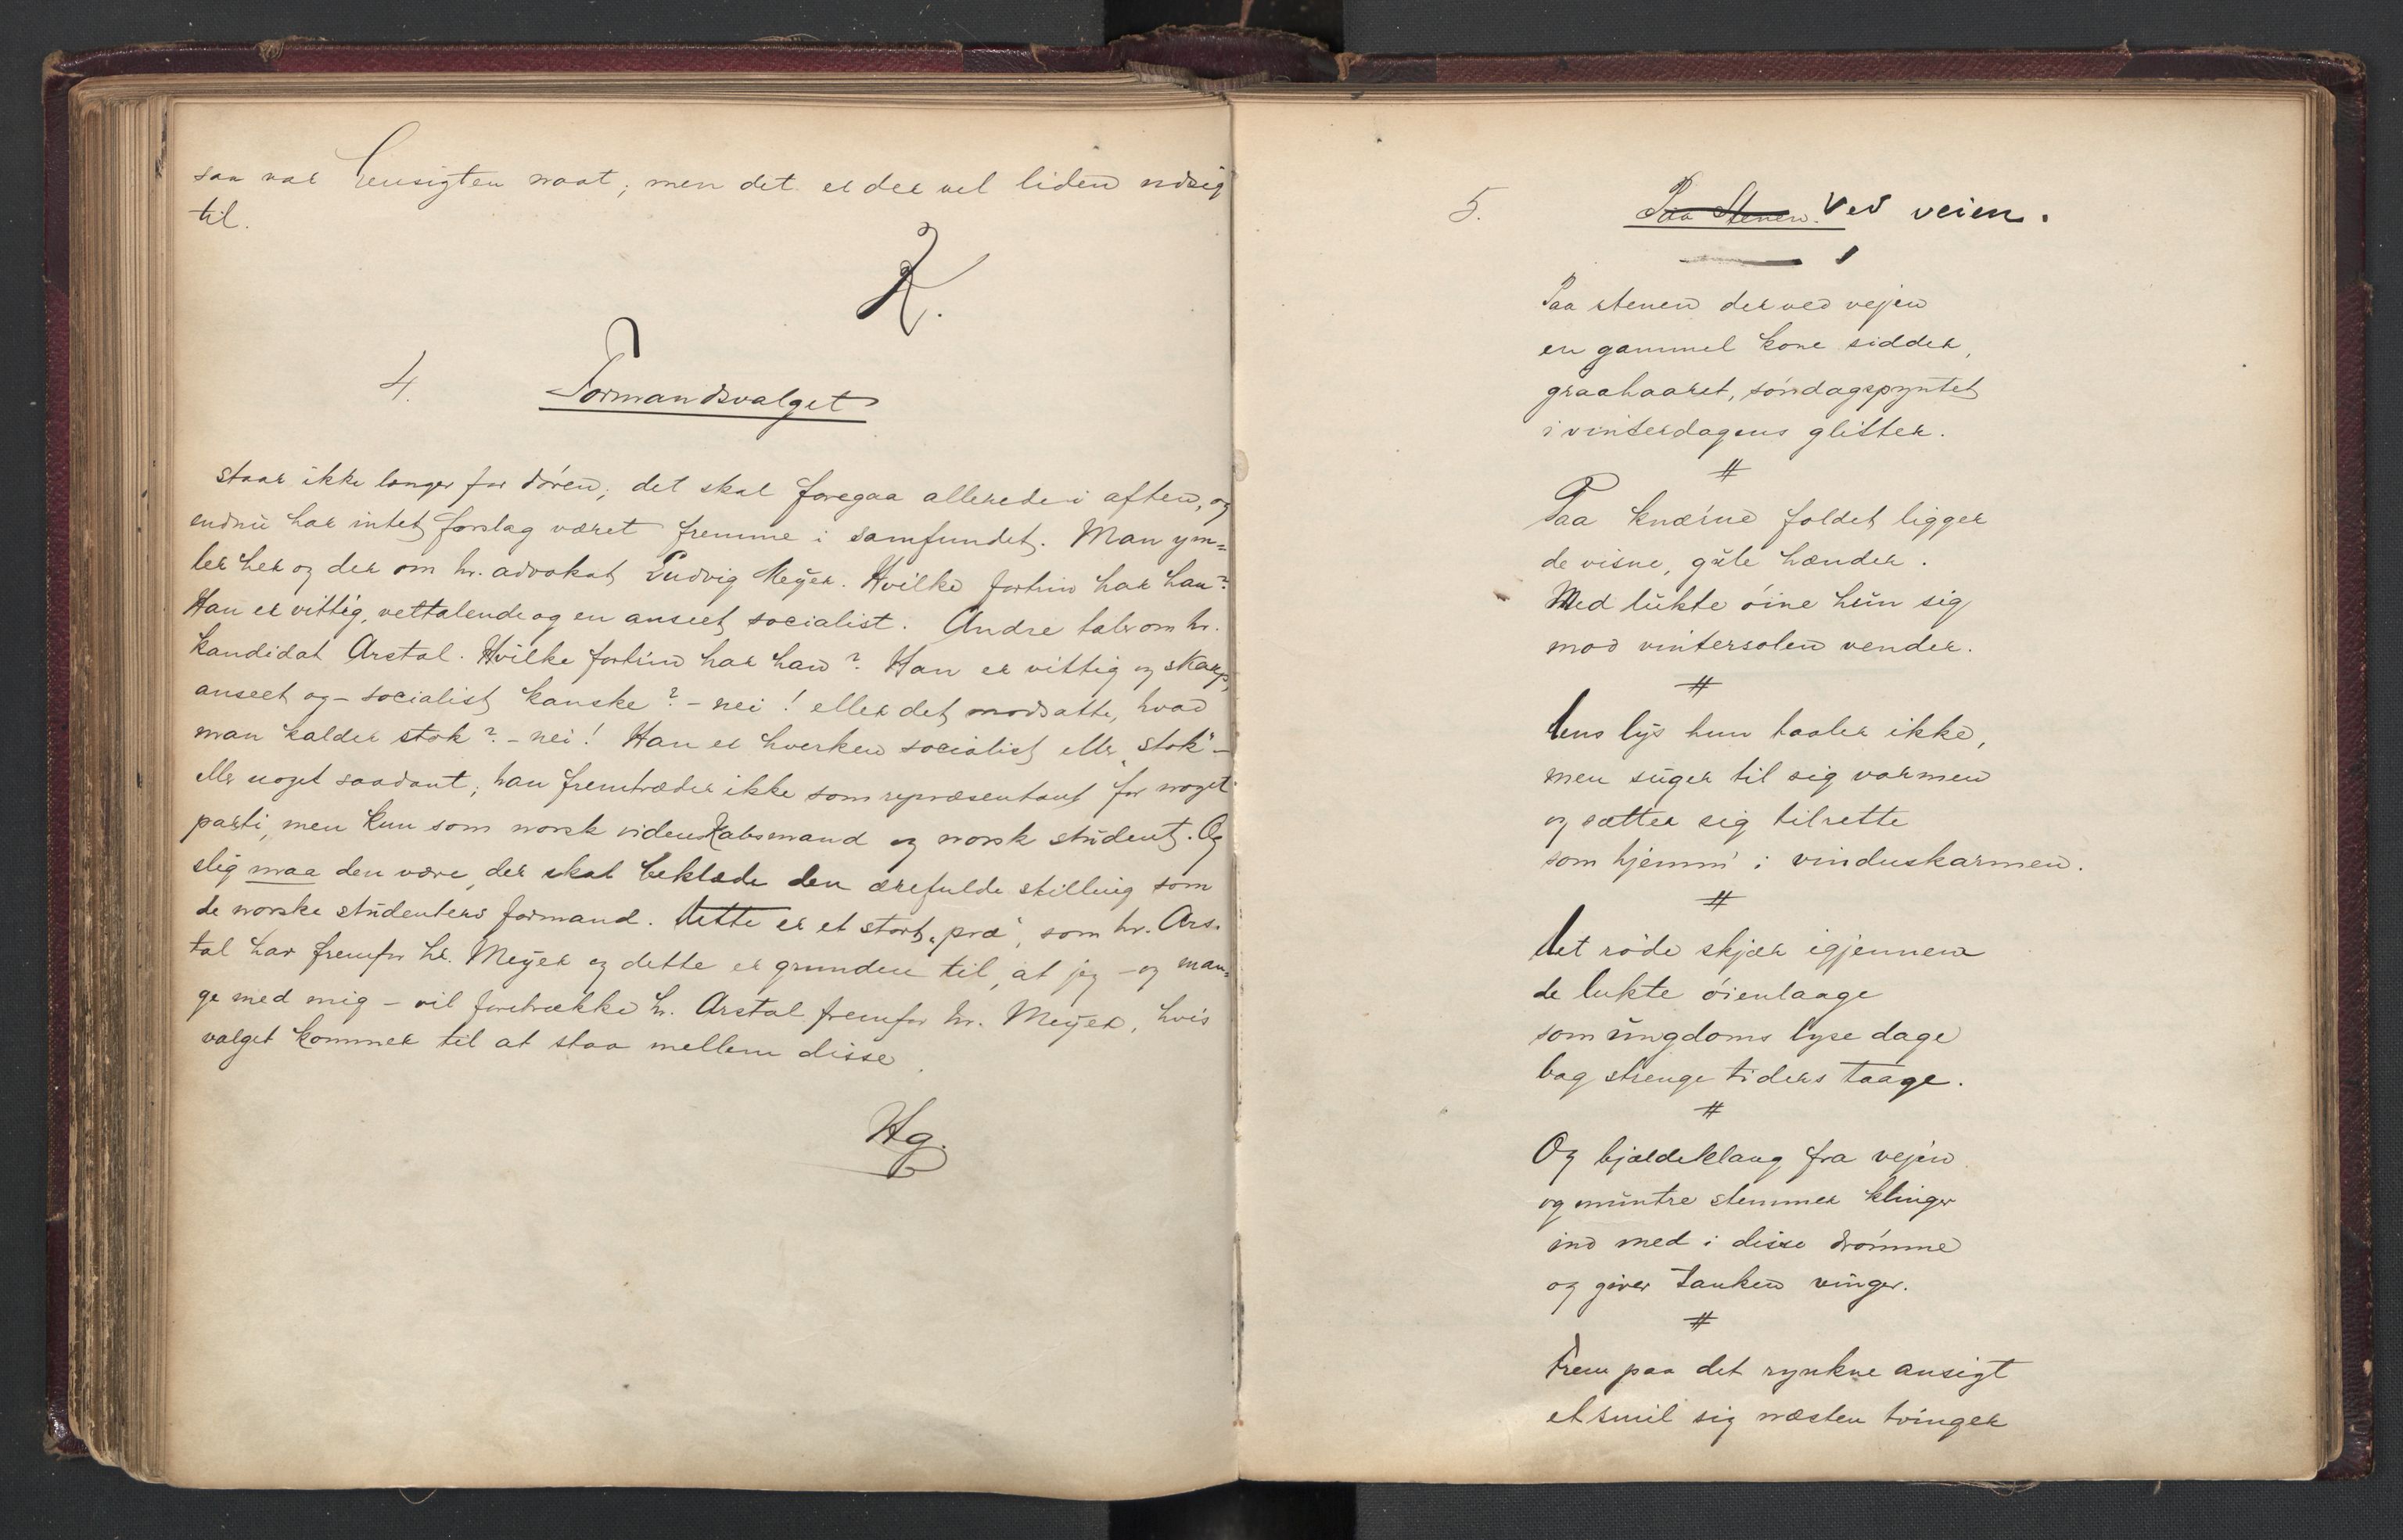 saa var hensigten naat; men det er der vel liden udsig
til.
K.
4. Formandsvalget
staar ikke længer for døren; det skal foregaa allerede i aften, og
endnu har intet forslag været fremme i samfundet. Man ym=
ler her og der om hr. advokat Ludvig Meyer. Hvilke fortrin har han?
Han er vittig, veltalende og en anseet socialist. Andre taler om hr.
kandidat Arstal. Hvilke fortrin har han? Han er vittig og skarp,
anseet og - socialist kanske? - nei! eller det modsatte, hvad
man kalder stok? - nei! Han er hverken socialist eller „stok" -
eller noget saadant; han fremtræder ikke som repræsentant for noget
parti, men kun som norsk videnskabsmand og norsk student. Og
slig maa den være, der skal beklæde den ærefulde stilling som
de norske studenters formand. Dette er et stort „præ", som hr. Ars-
tal har fremfor hr. Meyer og dette er grunden til, at jeg - og man=
ge med mig - vil foretrække hr. Arstal fremfor hr. Meyer, hvis
valget kommer til at staa mellem disse.
Hg.
5. Paa Stenen. Ved veien.
Paa stenen der ved vejen
en gammel kone sidder,
graahaaret, søndagspyntet
i vinterdagens glitter.
#
Paa knærne foldet ligger
de visne, gule hænder.
Med lukte øine hun sig
mod vintersolen vender.
#
Dens lys hun taaler ikke,
men suger til sig varmen
og sætter sig tilrette
som hjemm' i vinduskarmen.
#
Det røde skjær igjennem
de lukte øienlaage
som ungdoms lyse dage
bag strenge tiders taage.
#
Og bjældeklang fra vejen
og muntre stemmer klinger
ind med i disse drømme
og giver tanken vinger.
#
Frem paa det rynkne ansigt
et smil sig næsten tvinger